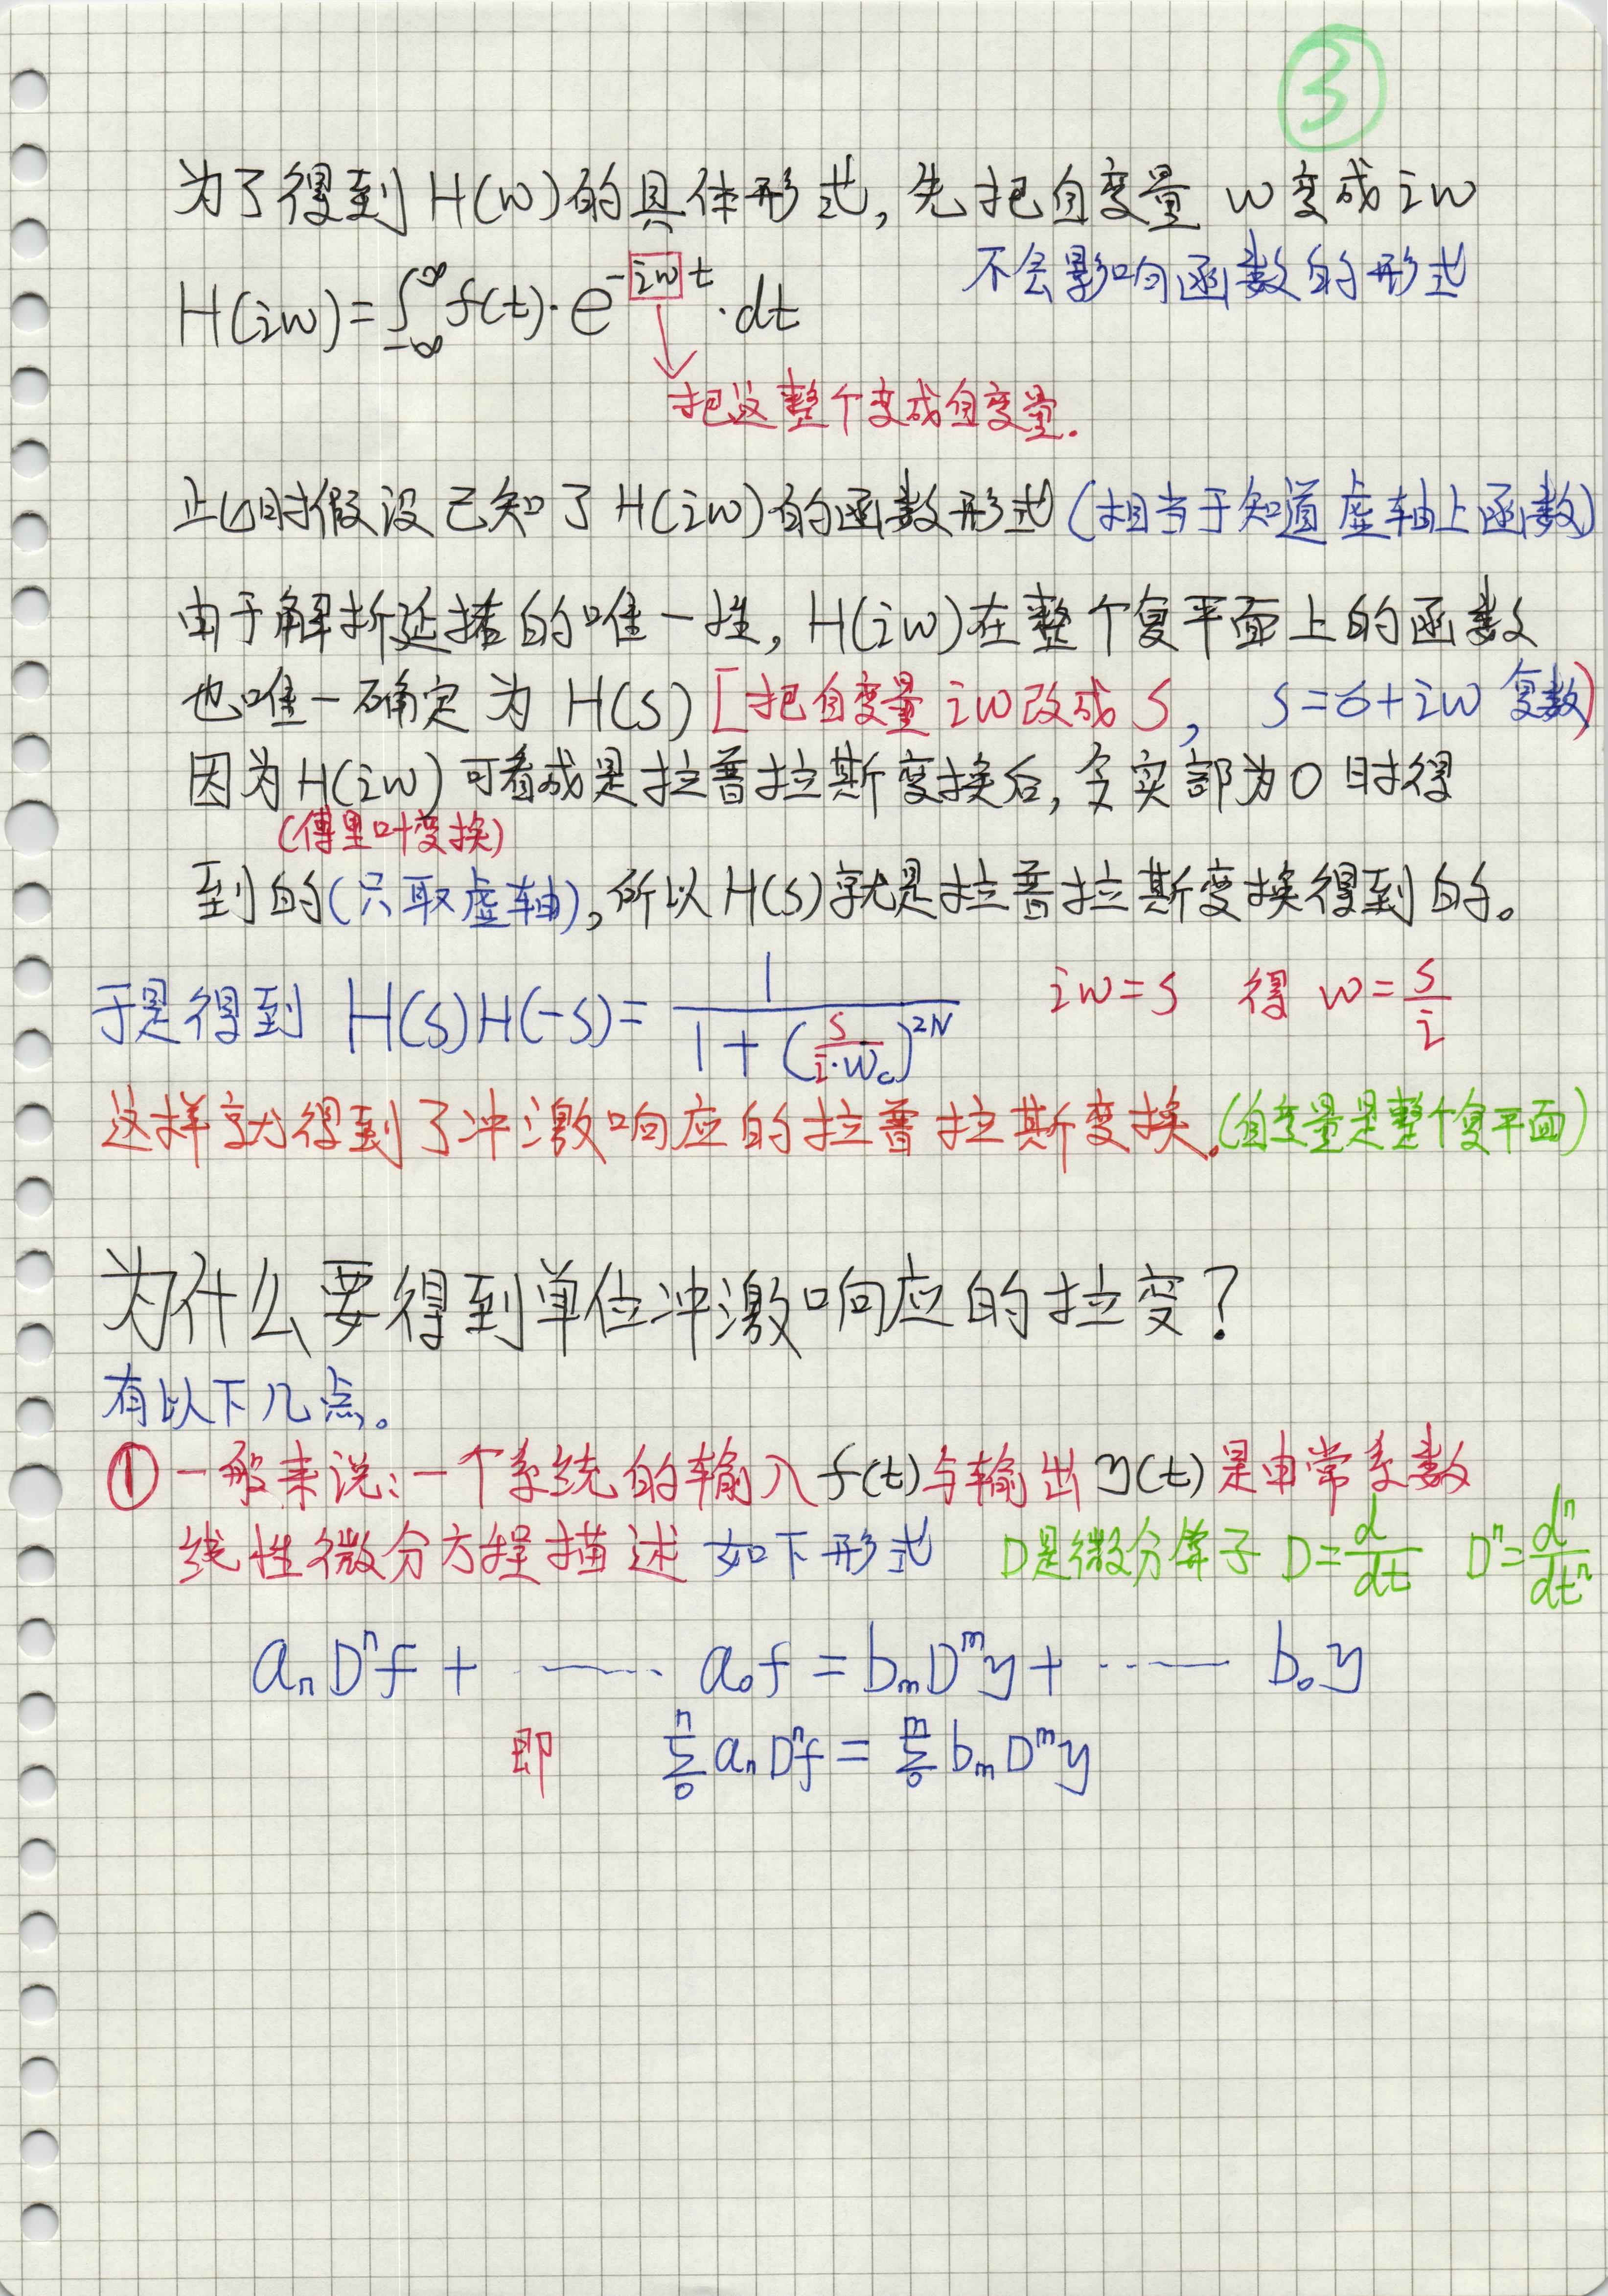 ③
为了得到 H(w)的具体形式, 先把自变量 w变成iw
不会影响函数的形式
H(iw)=∫_{-∞}^{∞} f(t)·e^{-iwt}·dt
把这整个变成自变量.
此时假设已知了H(iw)的函数形式(相当于知道虚轴上函数)
由于解折延拓的唯一性, H(iw)在整个复平面上的函数
也唯一确定为 H(s) [把自变量iw改成s, s=σ+iw 复数)
因为H(iw)可看成是拉普拉斯变换后, 令实部为0时得
(傅里叶变换)
到的(只取虚轴), 所以H(s)就是拉普拉斯变换得到的。
于是得到 H(s)H(-s)= 1/(1+(s/(i·w_c))^{2N}) iw=s 得 w=s/i
这样就得到了冲激响应的拉普拉斯变换.(自变量是整个复平面)
为什么要得到单位冲激响应的拉变?
有以下几点。
① 一般来说:一个系统的输入f(t)与输出y(t)是由常系数
线性微分方程描述 如下形式 D是微分算子 D=d/dt Dⁿ=dⁿ/dtⁿ
aₙDⁿf + ······ a₀f = bₘDᵐy + ······ b₀y
即 Σ_{0}^{n} aₙDⁿf = Σ_{0}^{m} bₘDᵐy